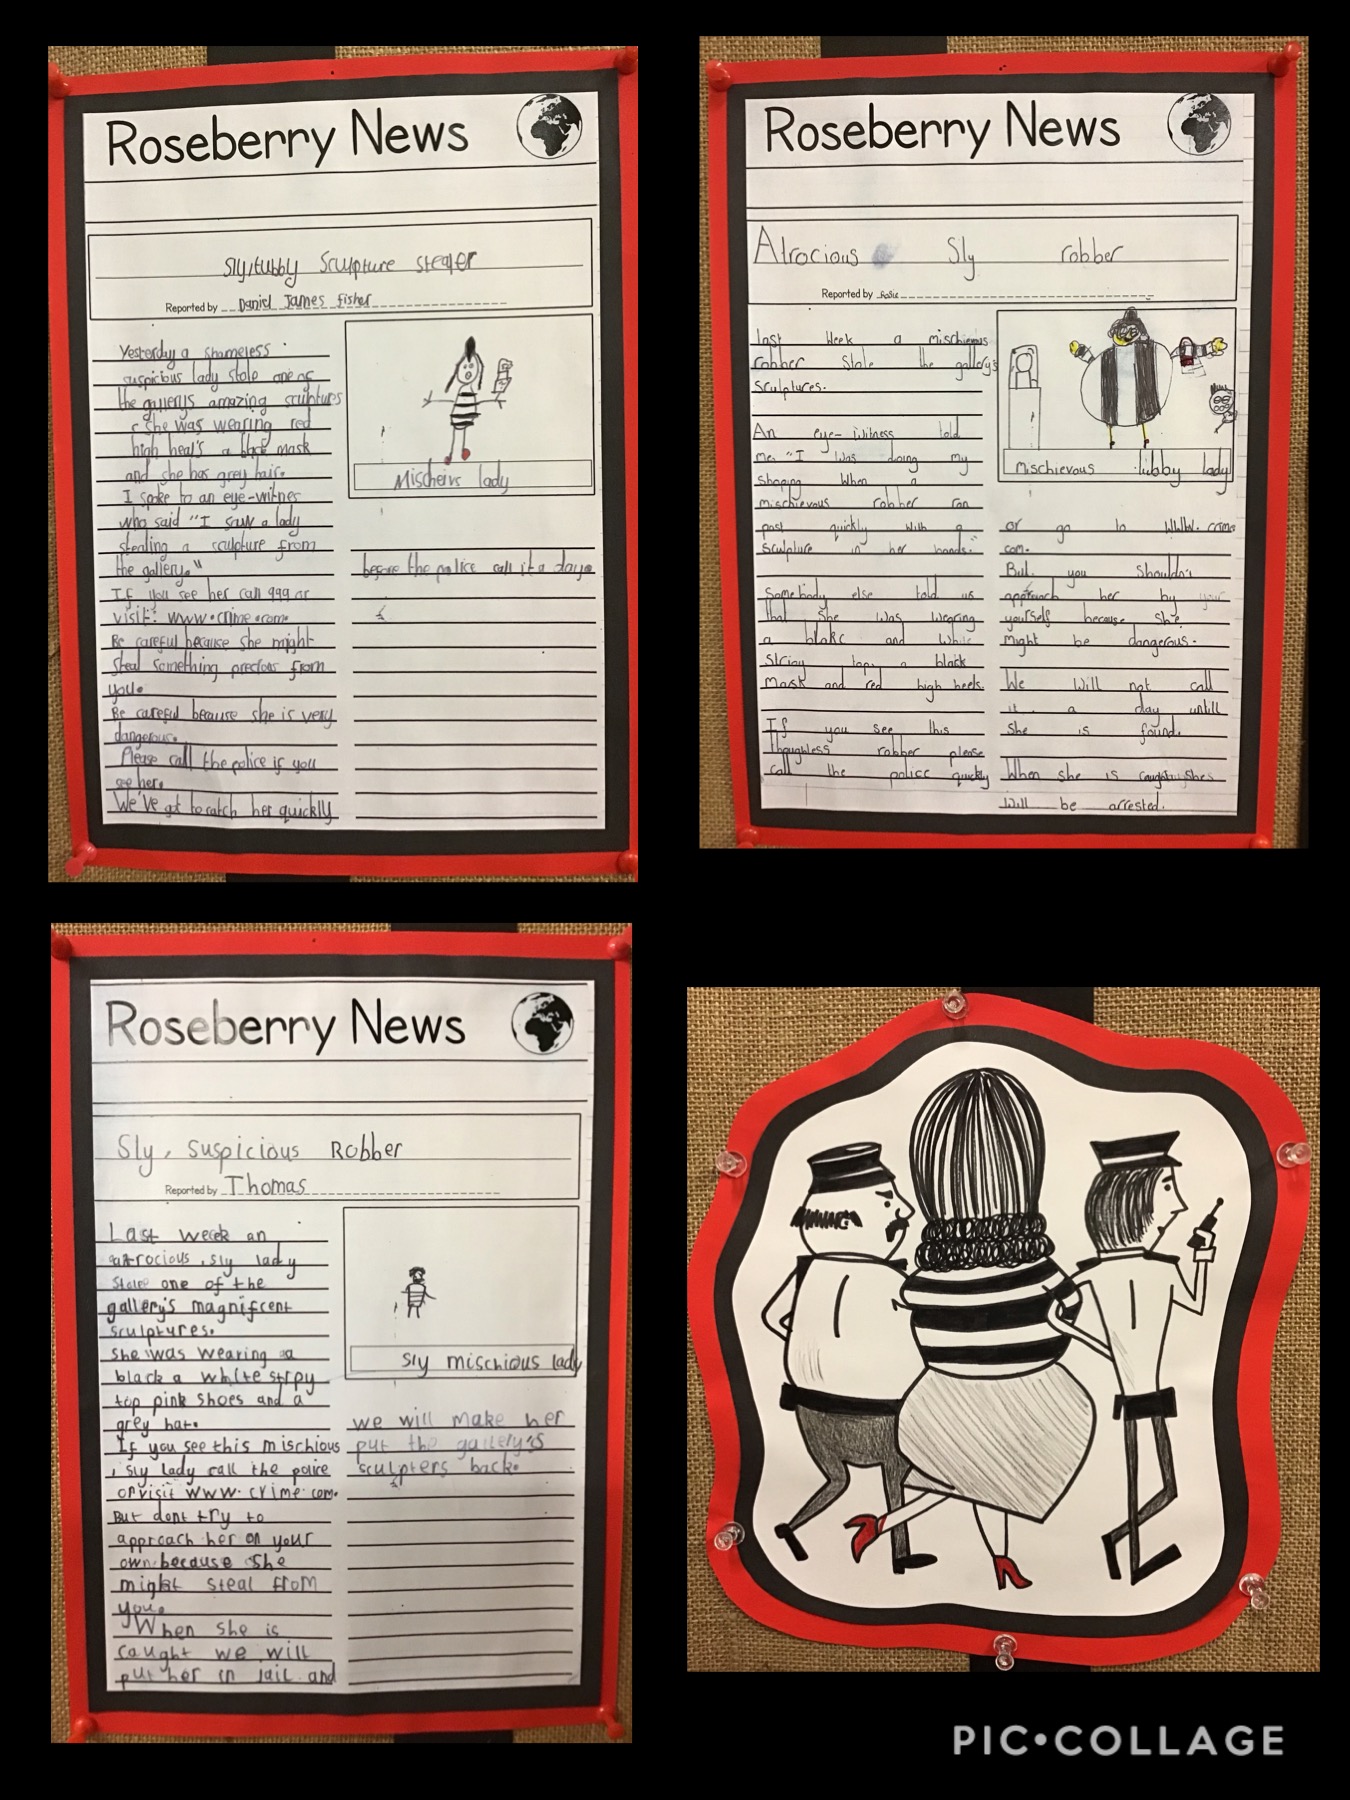 Roseberry News
Sly, tubby Sculpture stealer
Reported by Daniel James fisher
Yesterday a shameless
suspicious lady stole one of
the gallerys amazing sculptures
she was wearing red
high heal's a black mask
and she has grey hair.
I spoke to an eye-witnes
who said "I saw a lady
stealing a sculpture from
the gallery."
If you see her call 999 or
visit: www.crime.com.
Be careful because she might
steal something precious from
you.
Be careful because she is very
dangerous.
Please call the police if you
see her.
We've got to catch her quickly
Mischeivs lady
before the police call it a day.
Roseberry News
Atrocious Sly robber
Reported by Rosie
last Week a mischievous
robber Stole the gallery's
Sculptures.
An eye-witness told
me "I was doing my
shoping When a
mischievous robber ran
past quickly with a
Sculpture in her hands."
Somebody else told us
that She was Wearing
a blake and White
Stripy top, a black
Mask and red high heels.
If you see this
thoughless robber please
call the police quickly
Mischievous tubby lady
or go to WWW. crime
com.
But you Shouldn't
approach her by your
yourself because she
Might be dangerous.
We Will not call
it a day untill
She is found.
When she is caught shes
Will be arrested.
Roseberry News
Sly, suspicious Robber
Reported by Thomas
Last week an
atrocious, sly lady
stole one of the
gallery's magnifcent
sculptures.
She was wearing a
black a white strpy
top pink shoes and a
grey hat.
If you see this mischious
, sly lady call the police
or visit www.crime.com.
But dont try to
approach her on your
own because She
might steal from
you.
When she is
caught we will
put her in jail and
Sly mischious lady
we will make her
put the gallery's
sculpters back.
PIC•COLLAGE